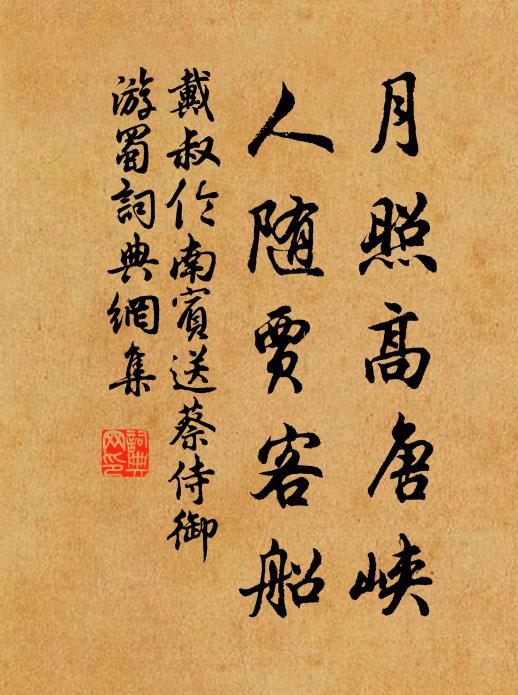 月照高唐峡
人随贾客船
戴叔伦南宾送蔡侍御
游蜀词典網集
詞典網印